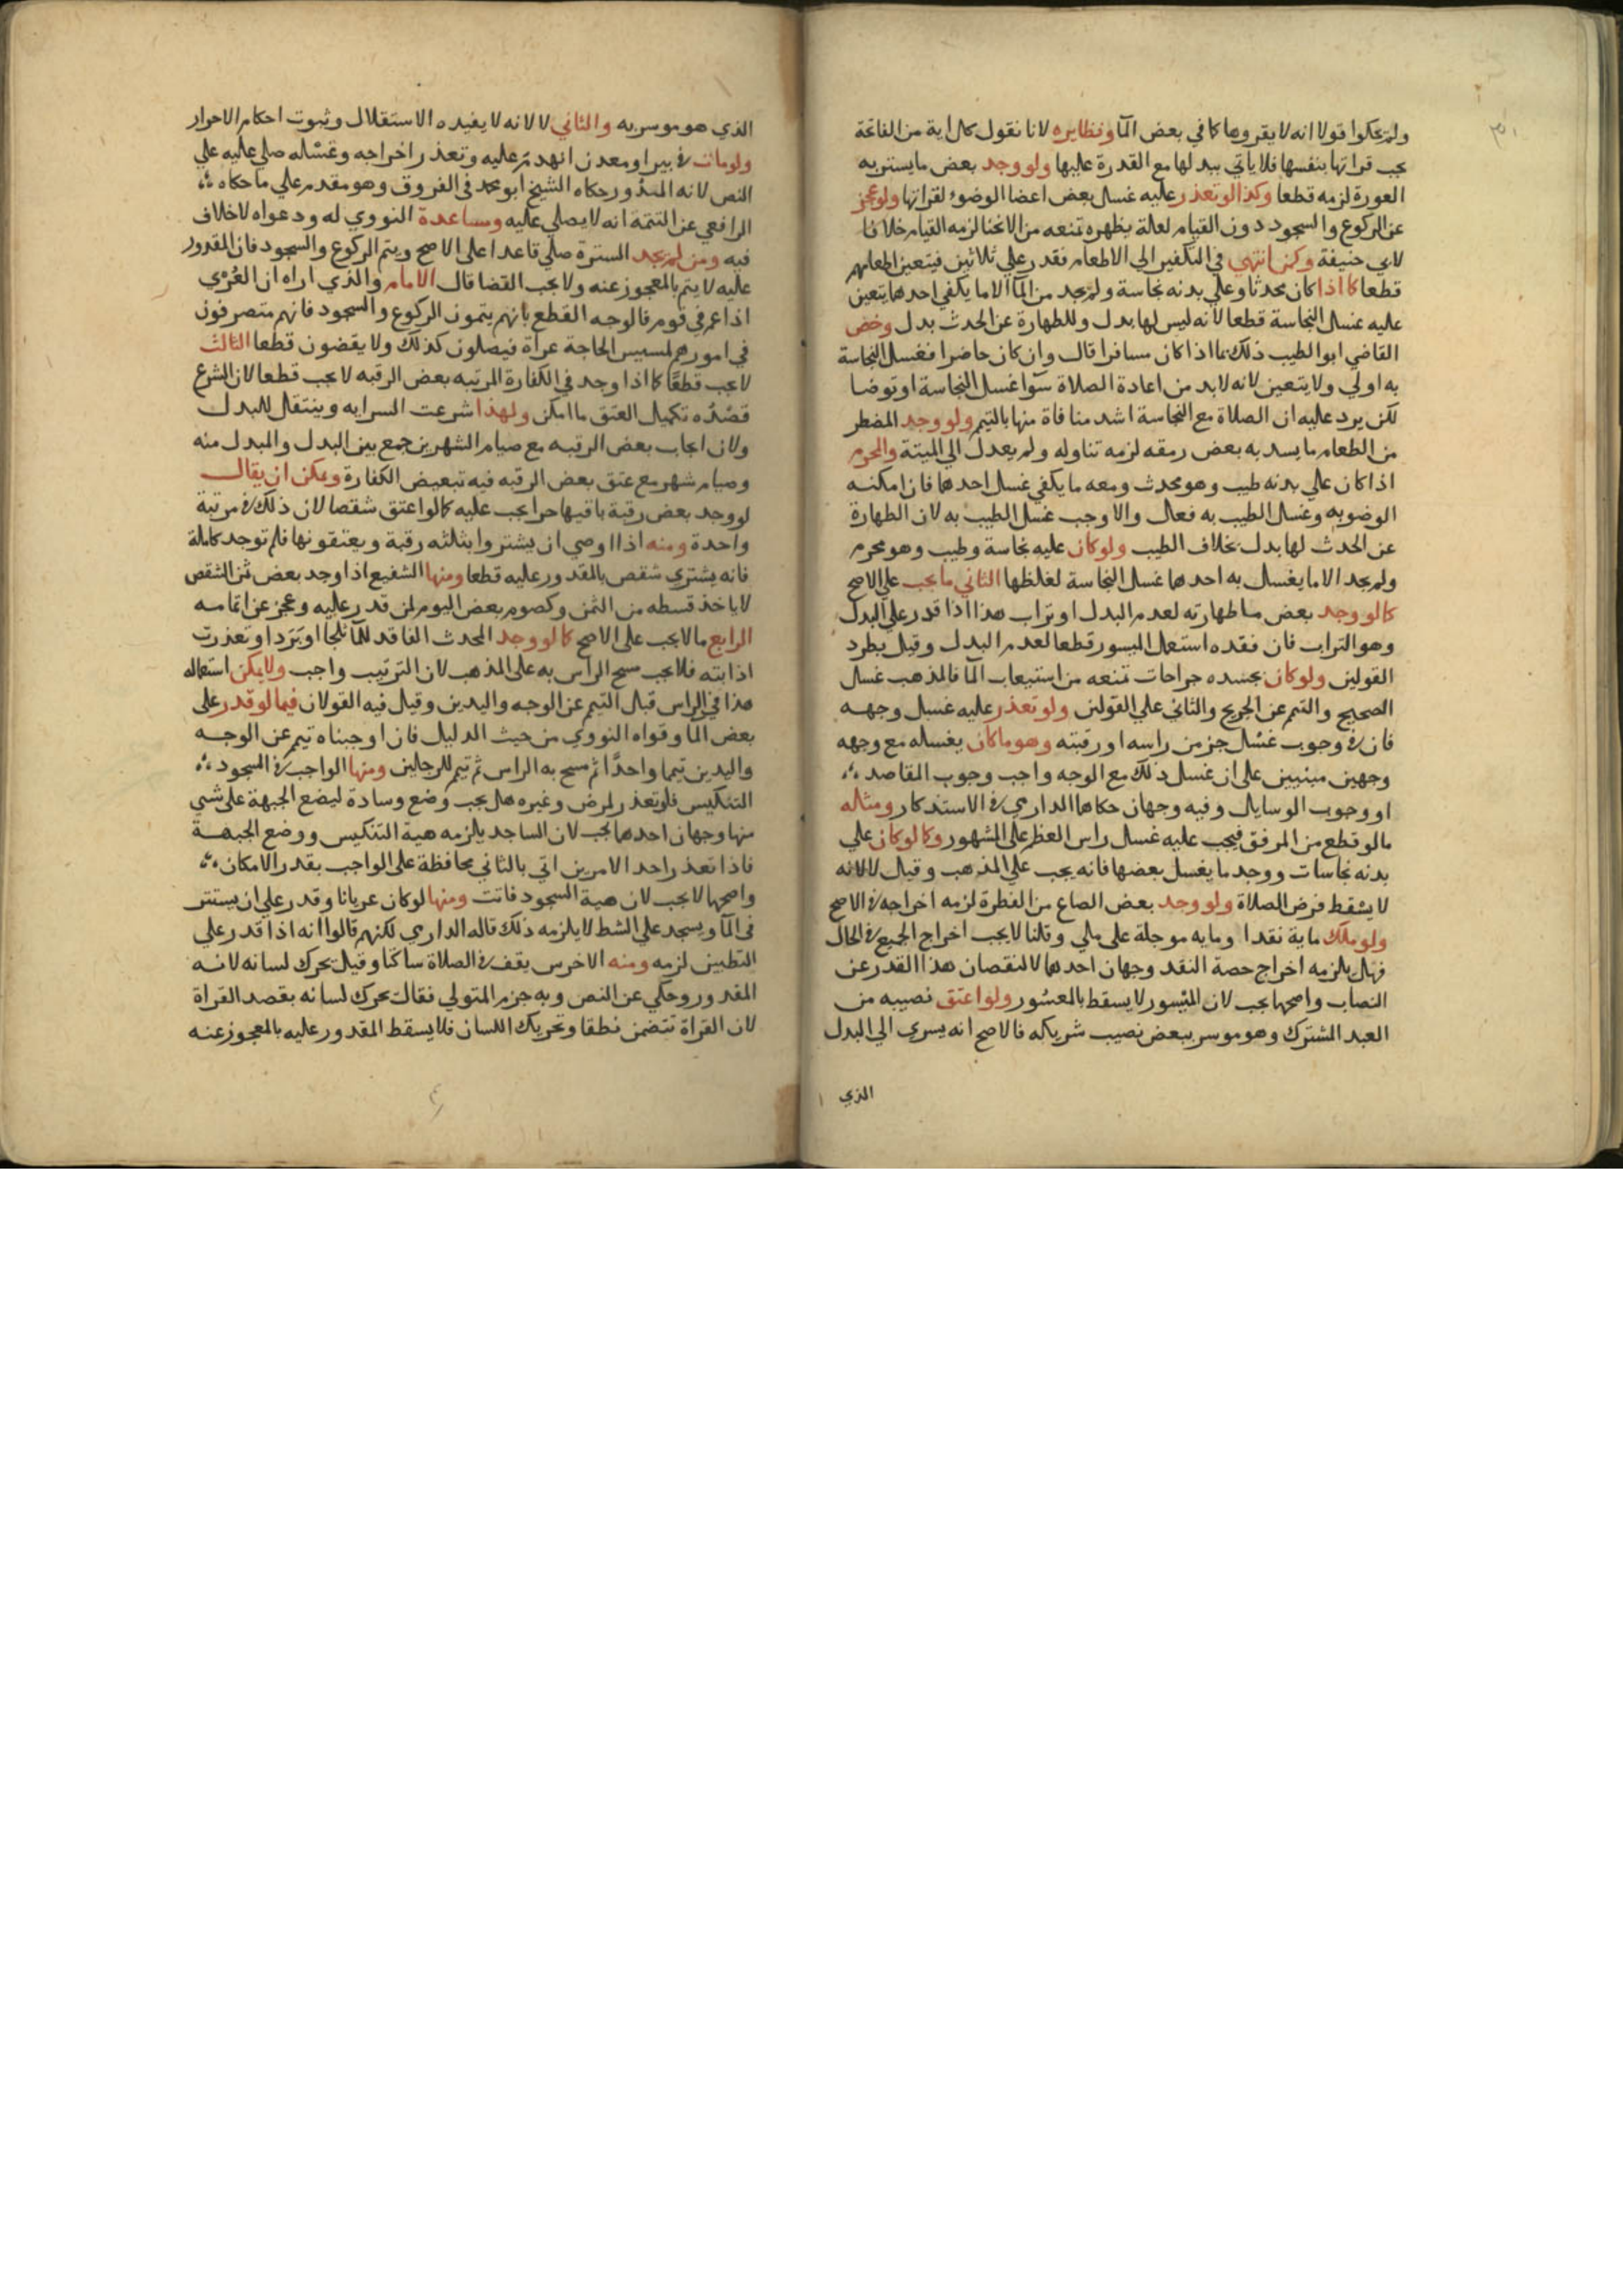 ولم يحكوا قولا انه لا يقروها كما في بعض المآ ونظايره لانا نقول كل اية من الفاتحة
يجب قراتها بنفسها فلا ياتي ببدلها مع القدرة عليها ولو وجد بعض ما يستر به
العورة لزمه قطعا وكذا لو تعذر عليه غسل بعض اعضا الوضوء لقراتها ولو عجز
عن الركوع والسجود دون القيام لعلة بظهره تمنعه من الانحنا لزمه القيام خلافا
لابي حنيفة وكمن انتهي في التكفير الي الاطعام فقدر علي ثلاثين فيتعين اطعامهم
قطعا كما اذا كان محدثا وعلي بدنه نجاسة ولم يجد من المآ الا ما يكفي احدهما يتعين
عليه غسل النجاسة قطعا لانه ليس لها بدل وللطهارة عن الحدث بدل وخص
القاضي ابو الطيب ذلك بما اذا كان مسافرا قال وان كان حاضرا فغسل النجاسة
به اولي ولا يتعين لانه لا بد من اعادة الصلاة سوآ غسل النجاسة او توضا
لكن يرد عليه ان الصلاة مع النجاسة اشد منافاة منها بالتيمم ولو وجد المضطر
من الطعام ما يسد به بعض رمقه لزمه تناوله ولم يعدل الي الميتة والمحرم
اذا كان علي بدنه طيب وهو محدث ومعه ما يكفي غسل احدهما فان امكنه
الوضو به وغسل الطيب به فعل والا وجب غسل الطيب به لان الطهارة
عن الحدث لها بدل بخلاف الطيب ولو كان عليه نجاسة وطيب وهو محرم
ولم يجد الا ما يغسل به احدهما غسل النجاسة لغلظها الثاني ما يجب علي الاصح
كما لو وجد بعض ما طهارته لعدم البدل او تراب هذا اذا قدر علي البدل
وهو التراب فان فقده استعمل الميسور قطعا لعدم البدل وقيل يطرد
القولين ولو كان بجسده جراحات تمنعه من استيعاب المآ فالمذهب غسل
الصحيح والتيمم عن الجريح والثاني علي القولين ولو تعذر عليه غسل وجهه
فان في وجوب غسل جز من راسه او رقبته وهو ما كان يغسله مع وجهه
وجهين مبنيين علي ان غسل ذلك مع الوجه واجب وجوب المقاصد
او وجوب الوسايل وفيه وجهان حكاهما الدارمي في الاستذكار ومثله
ما لو قطع من المرفق فيجب عليه غسل راس العظم علي المشهور وكما لو كان علي
بدنه نجاسات ووجد ما يغسل بعضها فانه يجب علي المذهب وقيل لا لانه
لا يسقط فرض الصلاة ولو وجد بعض الصاع من الفطرة لزمه اخراجه في الاصح
ولو ملك ماية نقدا وماية موجلة علي ملي وقلنا لا يجب اخراج الجميع في الحال
فهل يلزمه اخراج حصة النقد وجهان احدهما لا لنقصان هذا القدر عن
النصاب واصحها يجب لان الميسور لا يسقط بالمعسور ولو اعتق نصيبه من
العبد المشترك وهو موسر ببعض نصيب شريكه فالاصح انه يسري الي البدل
الذي
الذي هو موسر به والثاني لا لانه لا يفيده الاستقلال وثبوت احكام الاحرار
ولو مات في بير او معدن انهدم عليه وتعذر اخراجه وغسله صلي عليه علي
النص لانه المقدور حكاه الشيخ ابو محمد في الفروق وهو مقدم علي ما حكاه
الرافعي عن التتمة انه لا يصلي عليه ومساعدة النووي له ودعواه لا خلاف
فيه ومن لم يجد السترة صلي قاعدا علي الاصح ويتم الركوع والسجود فان المقدور
عليه لا يتم بالمعجوز عنه ولا يجب القضا قال الامام والذي اراه ان العُرْي
اذا عم في قوم فالوجه القطع بانهم يتمون الركوع والسجود فانهم متصرفون
في امورهم لمسيس الحاجة عراة فيصلون كذلك ولا يقضون قطعا الثالث
لا يجب قطعًا كما اذا وجد في الكفارة المرتبه بعض الرقبه لا يجب قطعا لان الشرع
قصْدُه تكميل العتق ما امكن ولهذا شرعت السرايه وينتقل للبدل
ولان ايجاب بعض الرقبه مع صيام الشهرين جمع بين البدل والمبدل منه
وصيام شهر مع عتق بعض الرقبه فيه تبعيض الكفارة ويمكن ان يقال
لو وجد بعض رقبة باقيها حر ايجب عليه كما لو اعتق شقصا لان ذلك في مرتبة
واحدة ومنه اذا اوصي ان يشتروا بثلثه رقبة ويعتقونها فلم توجد كاملة
فانه يشتري شقص بالمقدور عليه قطعا ومنها الشفيع اذا وجد بعض ثمن الشقص
لا ياخذ قسطه من الثمن وكصوم بعض اليوم لمن قدر عليه وعجز عن اتمامه
الرابع ما لا يجب علي الاصح كما لو وجد المحدث الفاقد للمآ ثلجا او بَرَدا وتعذرت
اذابته فلا يجب مسح الراس به علي المذهب لان الترتيب واجب ولا يمكن استعماله
هذا في الراس قبل التيمم عن الوجه واليدين وقيل فيه القولان فيما لو قدر علي
بعض المآ وقواه النووي من حيث الدليل فان اوجبناه تيمم عن الوجه
واليدين تيمما واحدًا ثم مسح به الراس ثم تيمم للرجلين ومنها الواجب في السجود
التنكيس فلو تعذر لمرض وغيره هل يجب وضع وسادة ليضع الجبهة علي شي
منها وجهان احدهما يجب لان الساجد يلزمه هية التنكيس ووضع الجبهة
فاذا تعذر احد الامرين اتي بالثاني محافظة علي الواجب بقدر الامكان
واصحها لا يجب لان هية السجود فاتت ومنها لو كان عريانا وقدر علي ان يستتر
في المآ ويسجد علي الشط لا يلزمه ذلك قاله الدارمي لكنهم قالوا انه اذا قدر علي
التطيين لزمه ومنه الاخرس يقف في الصلاة ساكتا وقيل يحرك لسانه لانه
المقدور وحكي عن النص وبه جزم المتولي فقال يحرك لسانه بقصد القراة
لان القراة تتضمن نطقا وتحريك اللسان فلا يسقط المقدور عليه بالمعجوز عنه